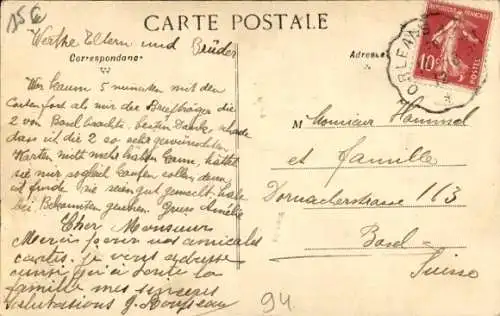 15 €
CARTE POSTALE
Werthe Eltern und Brüder
Correspondance
Adresse
RÉPUBLIQUE FRANÇAISE
10c
POSTES
ORLEANS
War kaum 5 minuten mit den
Carten fort als mir der Briefträger die
2 von Basel brachte. besten Dank, schade
dass ist die 2 so sehr gewünschten
Karten nicht mehr haben kann, hättet
sie mir sogleich kaufen sollen, denn
ich finde sie sein gut gemacht, habe
bei Bekannten gesehen. Gruss Amélie
Cher Monsieur
Merci pour vos amicales
cartes. je vous adresse
ainsi qu'à toute la
famille mes sincères
salutations J. Rousseau
M Monsieur Hammel
et famille
Dornacherstrasse 163
Basel
Suisse
94.